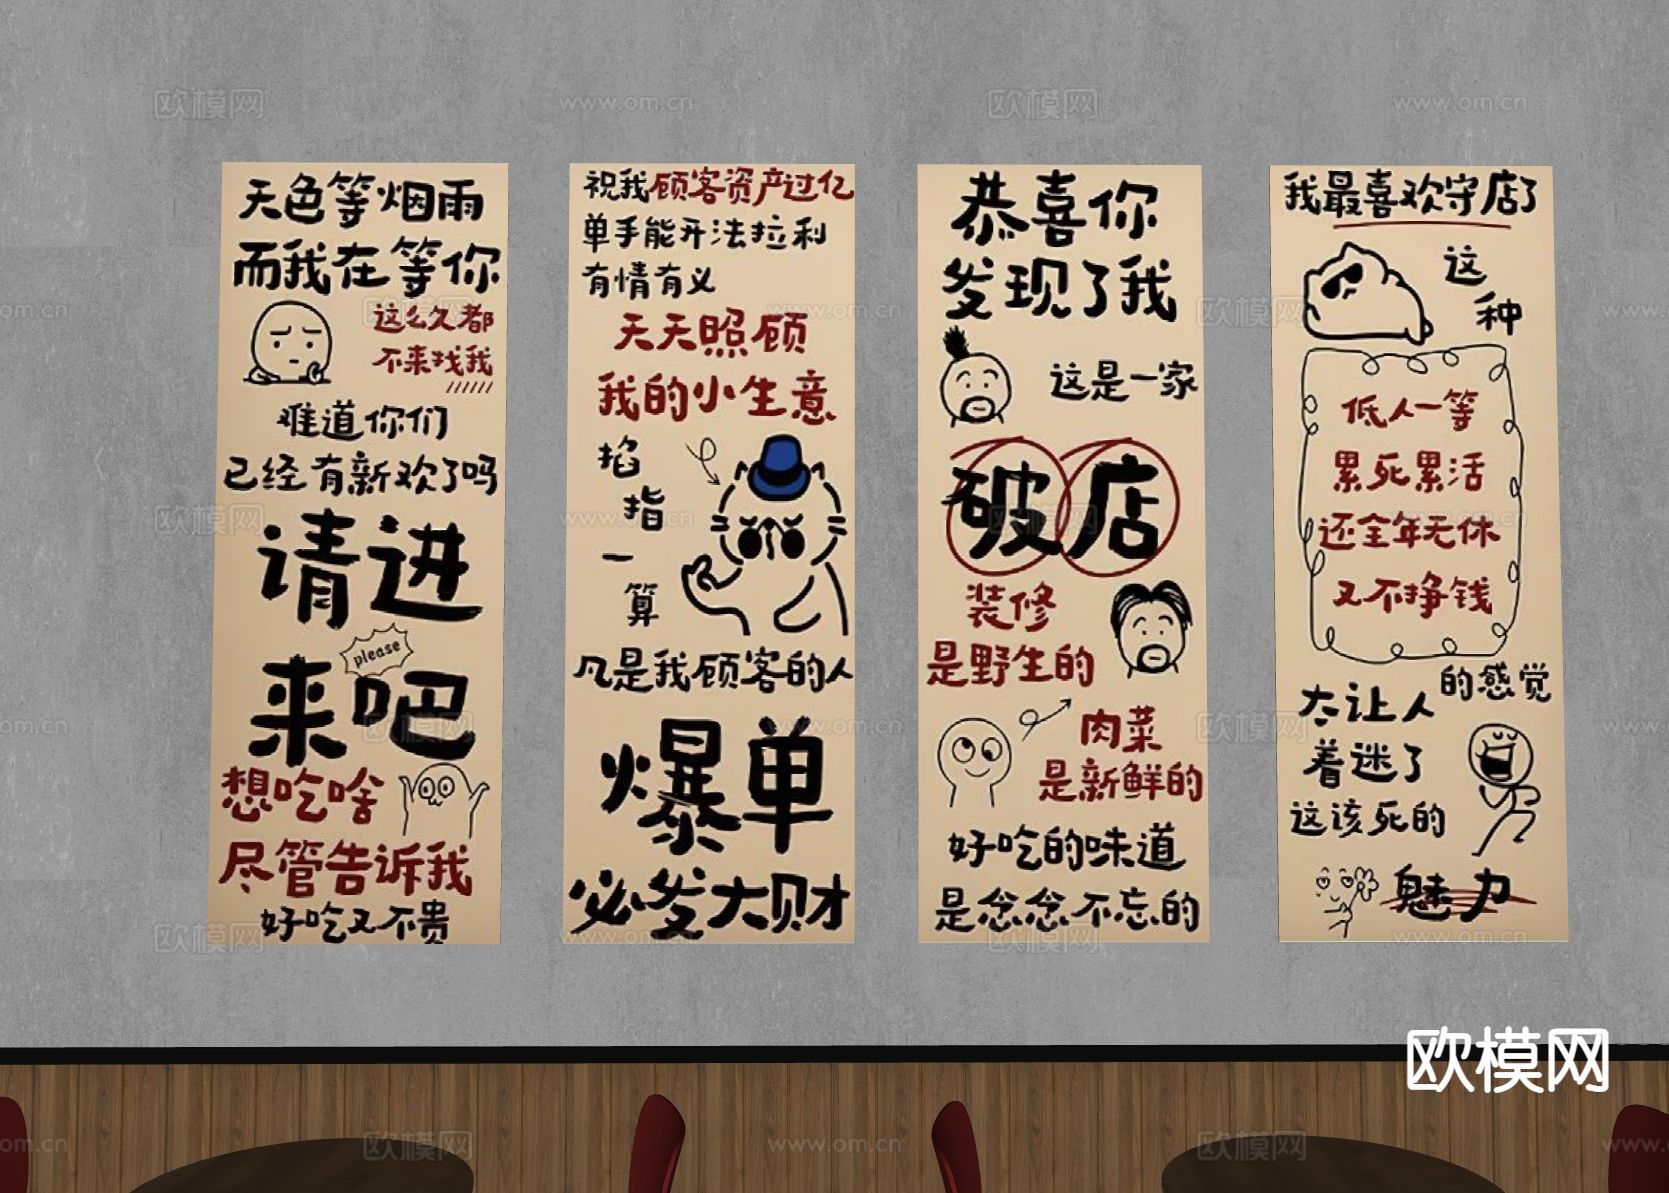 天色等烟雨
而我在等你
这么久都
不来找我
难道你们
已经有新欢了吗
请进
please
来吧
想吃啥
尽管告诉我
好吃又不贵
祝我顾客资产过亿
单手能开法拉利
有情有义
天天照顾
我的小生意
掐
指
一
算
凡是我顾客的人
爆单
必发大财
恭喜你
发现了我
这是一家
破店
装修
是野生的
肉菜
是新鲜的
好吃的味道
是念念不忘的
我最喜欢守店了
这
种
低人一等
累死累活
还全年无休
又不挣钱
的感觉
太让人
着迷了
这该死的
魅力
欧模网
www.om.cn